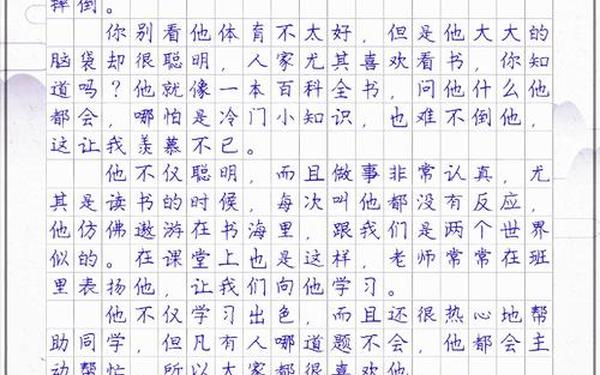 摔倒。
你别看他体育不太好，但是他大大的
脑袋却很聪明，人家尤其喜欢看书，你知
道吗？他就像一本百科全书，问他什么他
都会，哪怕是冷门小知识，也难不倒他，
这让我羡慕不已。
他不仅聪明，而且做事非常认真，尤
其是读书的时候，每次叫他都没有反应，
他仿佛遨游在书海里，跟我们是两个世界
似的。在课堂上也是这样，老师常常在班
里表扬他，让我们向他学习。
他不仅学习出色，而且还很热心地帮
助同学，但凡有人哪道题不会，他都会主
动帮忙，所以大家都很喜欢他